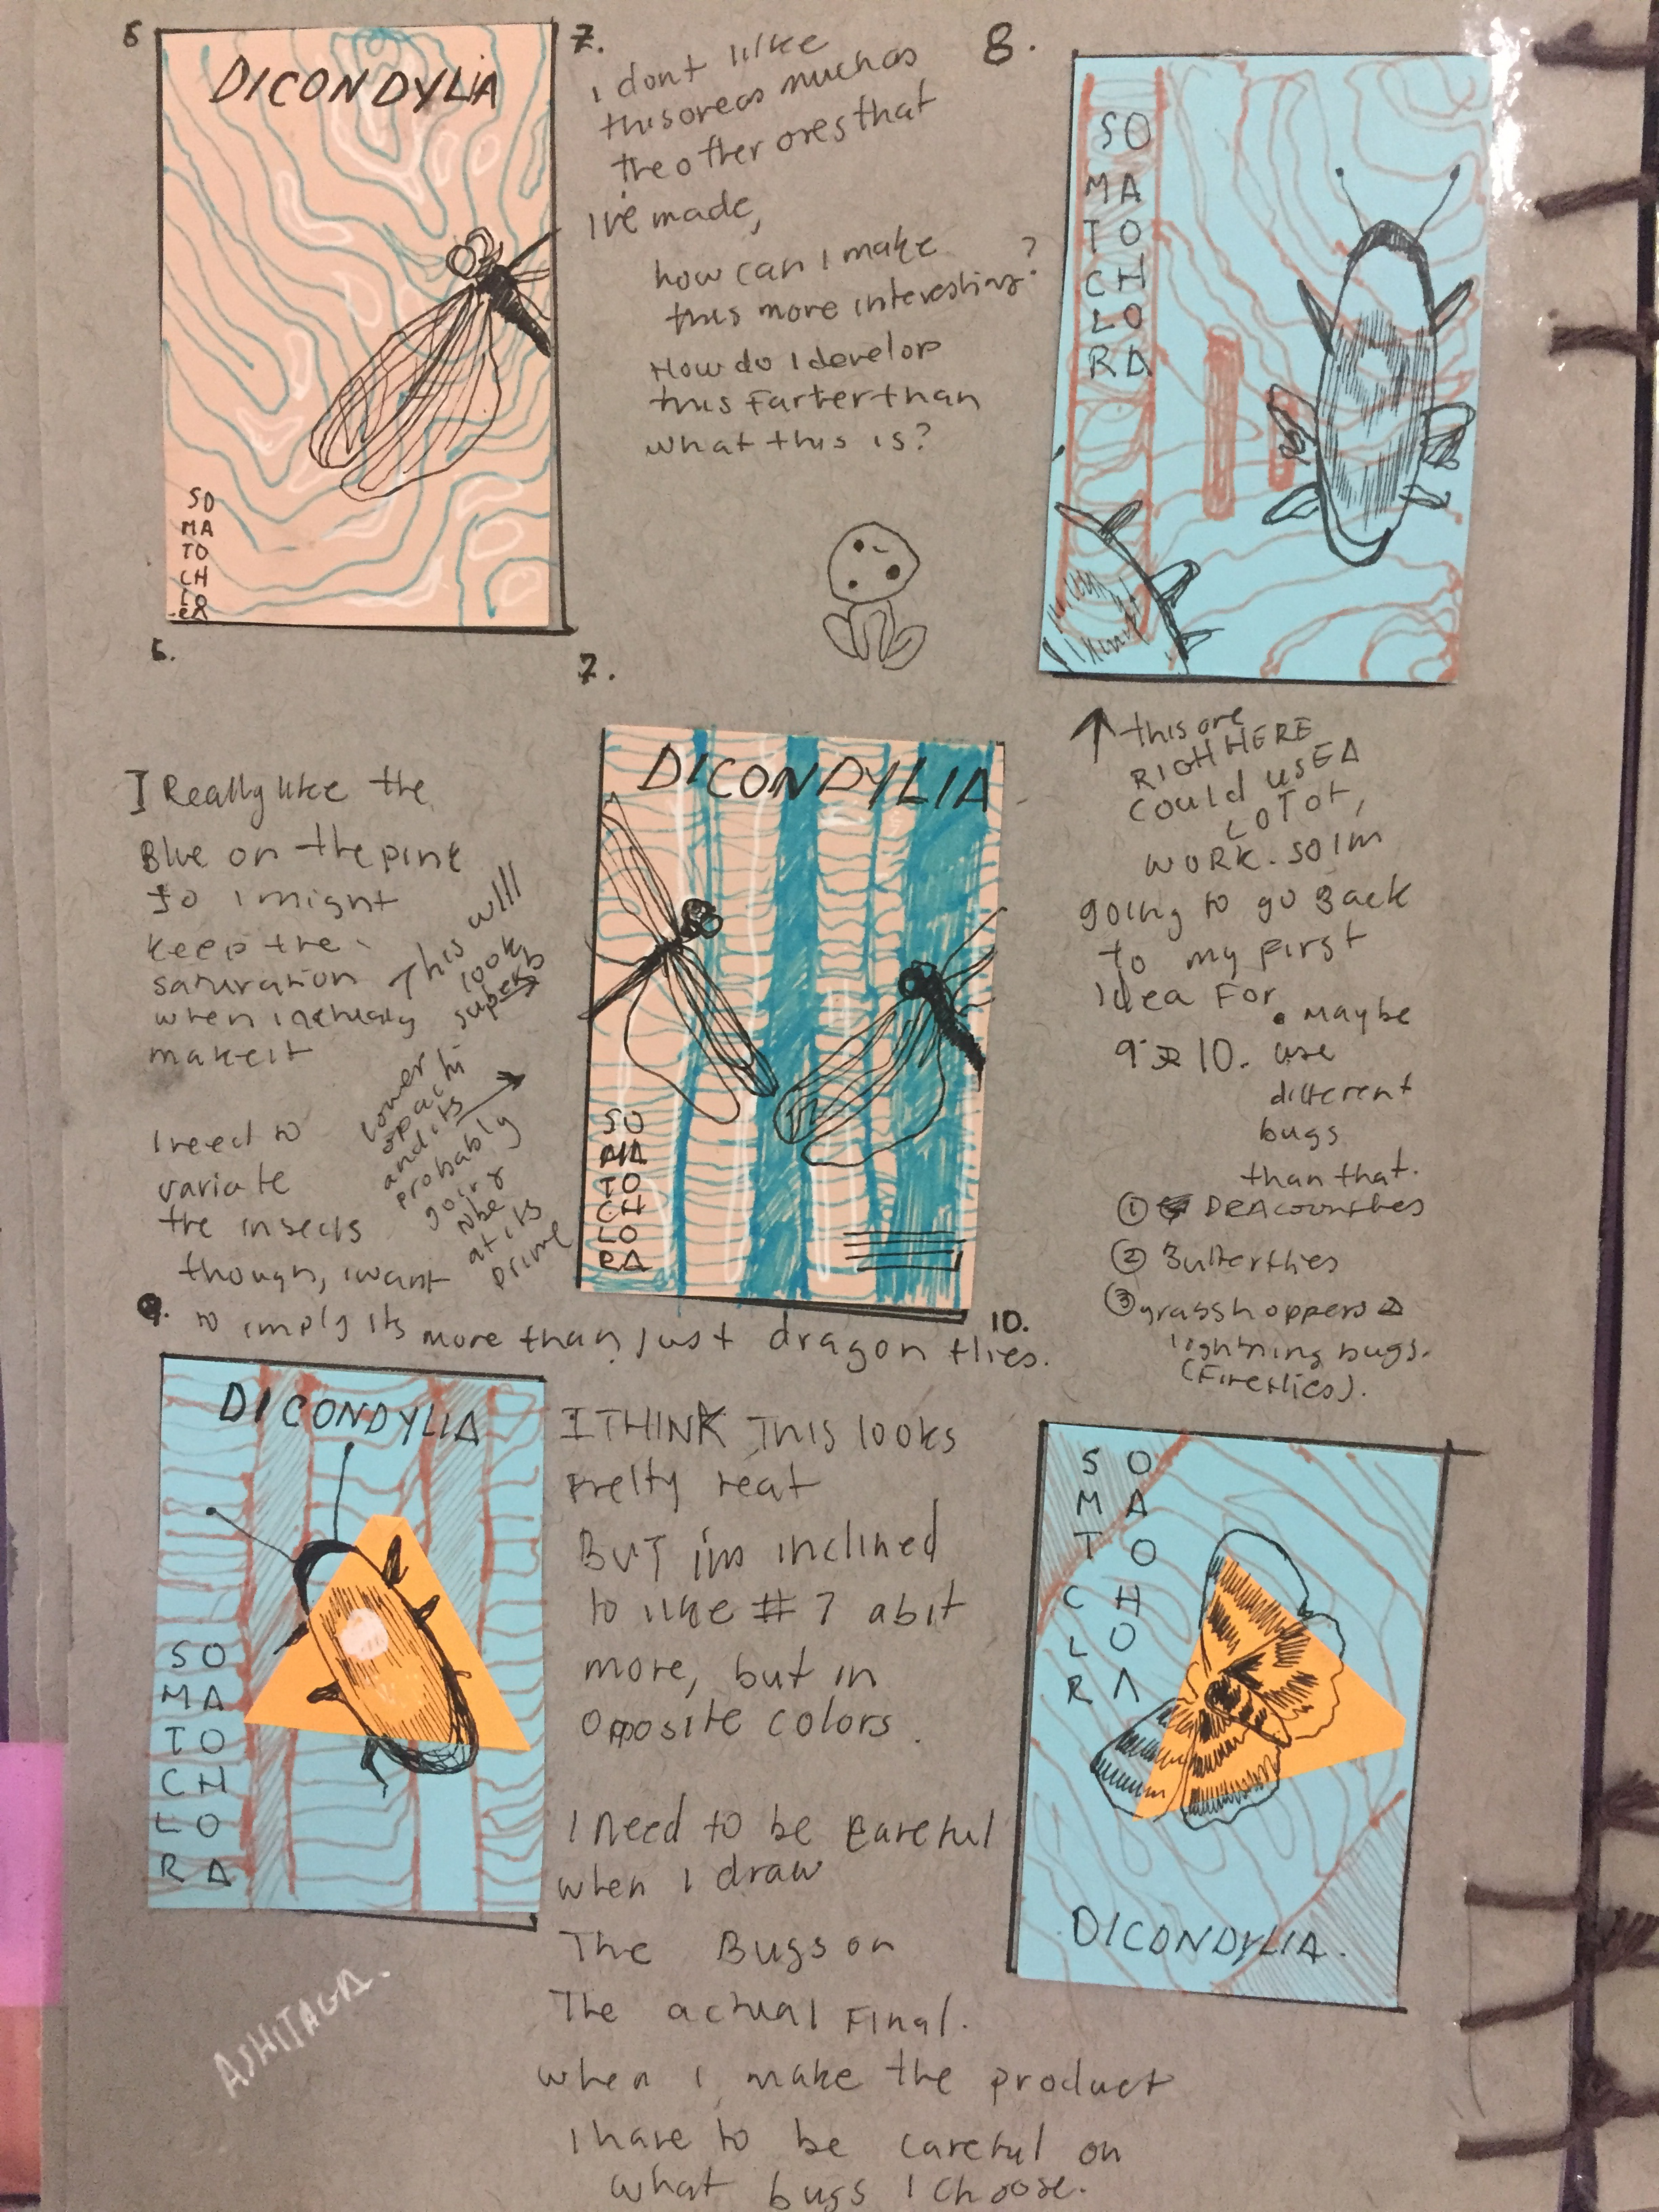 6
DICONDYLIA
SO
MA
TO
CH
LO
RA
7.
I dont like
this one as much as
the other ones that
I've made,
how can I make
this more interesting?
How do I develop
this Farter than
what this is?
8.
SO
MA
TO
CH
LO
RA
6.
I Really like the
Blue on the pink
so i might
keep the
saturation
when i actually
make it
This will
look
superb
I need to
variate
the insects
though, i want
to imply its more than just dragon flies.
lower
opaciti
and its
probably
going
to be
at its
prime
7.
DICONDYLIA
SO
MA
TO
CH
LO
RA
this one
RIGHT HERE
COULD USE A
LOT OF,
WORK. SO IM
going to go Back
to my First
Idea For
9 10.
• Maybe
use
different
bugs
than that.
① DRAGONflies
② Butterflies
③ grasshoppers &
lightning bugs.
(Fireflies).
9.
DICONDYLIA
SO
MA
TO
CH
LO
RA
I THINK This looks
Pretty neat
BUT im inclined
to like #7 a bit
more, but in
opposite colors.
I need to be careful
when I draw
The Bugs on
The actual Final.
when I make the product
I have to be careful on
what bugs I choose.
10.
S O
M A
T O
C H
L O
R A
DICONDYLIA.